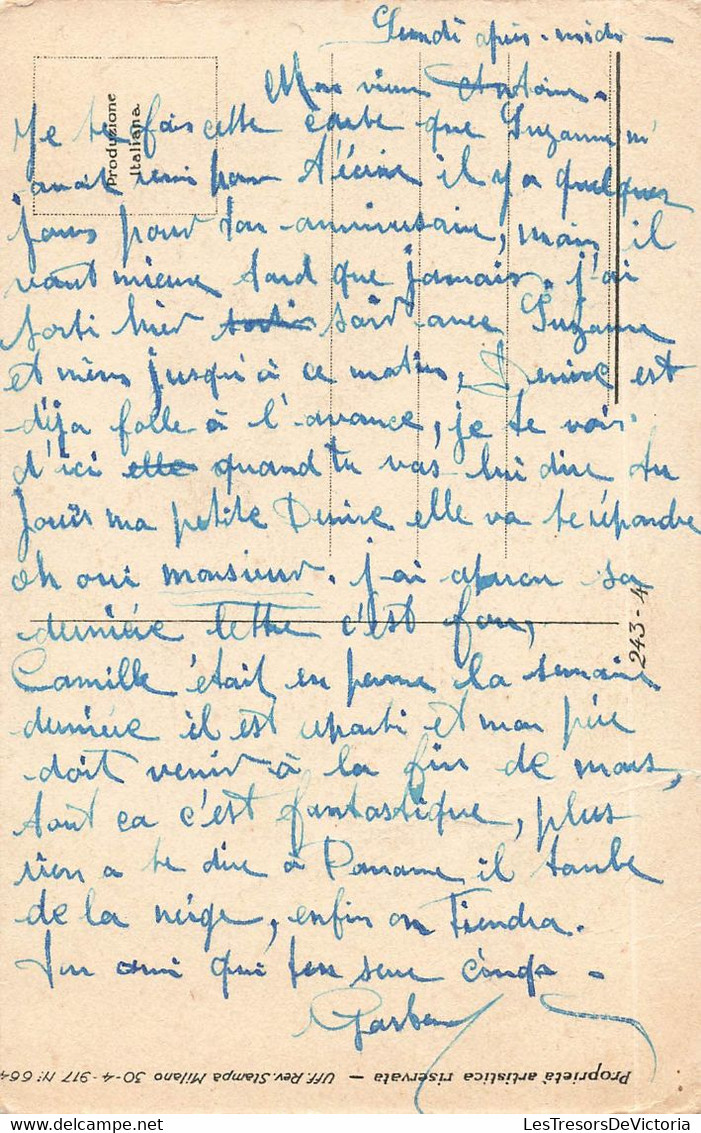 Lundi après-midi —
Mon vieux Antoine.
Produzione
Italiana.
Je te fais cette carte que Suzanne m'
avait remi pour t'écrire il y a quelques
jours pour ton anniversaire, mais il
vaut mieux tard que jamais. j'ai
sorti hier sorti soir avec Suzanne
et jusqu'à ce matin, Denise est
déja folle à l'avance, je te vois
d'ici elle quand tu vas lui dire tu
jouïs ma petite Denise elle va te répondre
oh oui monsieur. j'ai sa
dernière lettre c'est fou,
Camille était en perme la semaine
dernière il est reparti et mon père
doit venir à la fin de mars,
tout ca c'est fantastique, plus
rien a te dire à Paname il tombe
de la neige, enfin on tiendra.
Ton ami qui ten serre cinq.
243-4
Proprietà artistica riservata — Uff. Rev. Stampa Milano 30-4-917 N: 664
LesTresorsDeVictoria